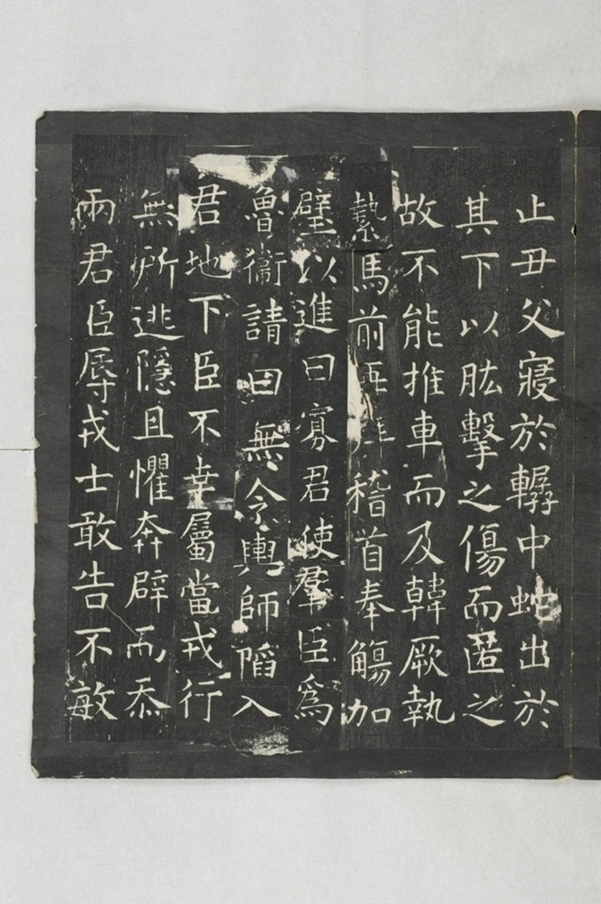 止丑父寢於轏中蛇出於
其下以肱擊之傷而匿之
故不能推車而及韓厥執
縶馬前再拜稽首奉觴加
璧以進曰寡君使羣臣爲
魯衞請曰無令輿師陷入
君地下臣不幸屬當戎行
無所逃隱且懼奔辟而忝
兩君臣辱戎士敢告不敏